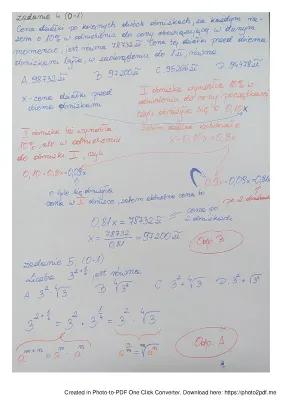 Zadanie 4 (0-1)
Cena działki po kolejnych dwóch obniżkach, za każdym ra-
zem o 10% w odniesieniu do ceny obowiązującej w danym
momencie, jest równa 78732 zł. Cena tej działki przed dwiema
obniżkami była, w zaokrągleniu do 1 zł, równa
A 98732 zł B 97200 zł C. 95266 zł D. 94478 zł
x - cena działki przed
dwiema obniżkami
I obniżka wynosiła 10% w
odniesieniu do ceny początkowej
czyli obniżyła się o 0,10x
Zatem działka kosztowała
x - 0,10x = 0,9x
II obniżka też wynosiła
10%, ale w odniesieniu
do obniżki I, czyli
0,10 · 0,9x = 0,09x
o tyle się obniżyła
cena w II obniżce, zatem aktualna cena to
0,9x - 0,09x = 0,81x
po 2 obniżkach
0,81x = 78732 zł
cena po
2 obniżkach
x = 78732/0,81 = 97200 zł
Odp. B
Zadanie 5. (0-1)
Liczba 3^{2+1/4} jest równa
A 3² · ⁴√3 B ⁴√3² C 3² + ⁴√3 D. 3² + √3⁴
3^{2+1/4} = 3² · 3^{1/4} = 3² · ⁴√3
Odp. A
a^{m+n} = a^m · a^n
Created in Photo-to-PDF One Click Converter. Download here: https://photo2pdf.me